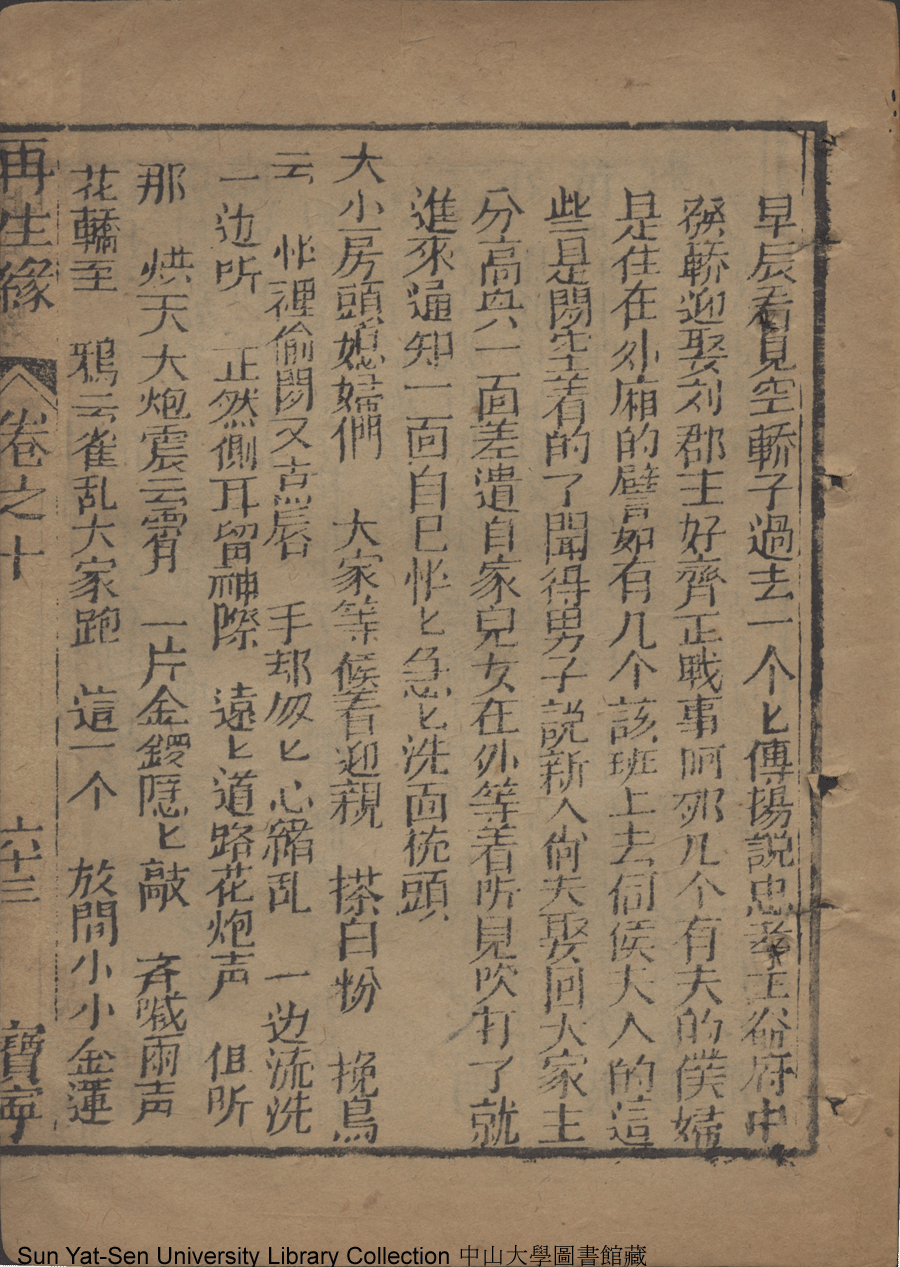 早辰看見空轎子過去一个匕傳揚說忠孝王爺府中
發轎迎娶刘郡主好齊正戰事呵那几个有夫的僕婦
是住在外廂的譬如有几个該班上去伺侯夫人的這
些是閑空着的了聞得男子說新人倘夫娶回大家主
分高興一面差遣自家兒女在外等着所見吹打了就
進來通知一面自已忙匕急匕洗面梳頭
大小房頭媳婦們 大家等候看迎親 搽白粉 挽烏
云 忙裡偷閑又点唇 手却忽匕心緒乱 一边流洗
一边听 正然側耳留神際 遠匕道路花炮声 但听
那 烘天大炮震云霄 一片金鑼隱匕敲 斉喊兩声
花轎至 鴉云雀乱大家跑 這一个 放開小小金蓮
再生緣 卷之十 六十三 寶寧
Sun Yat-Sen University Library Collection 中山大學圖書館藏